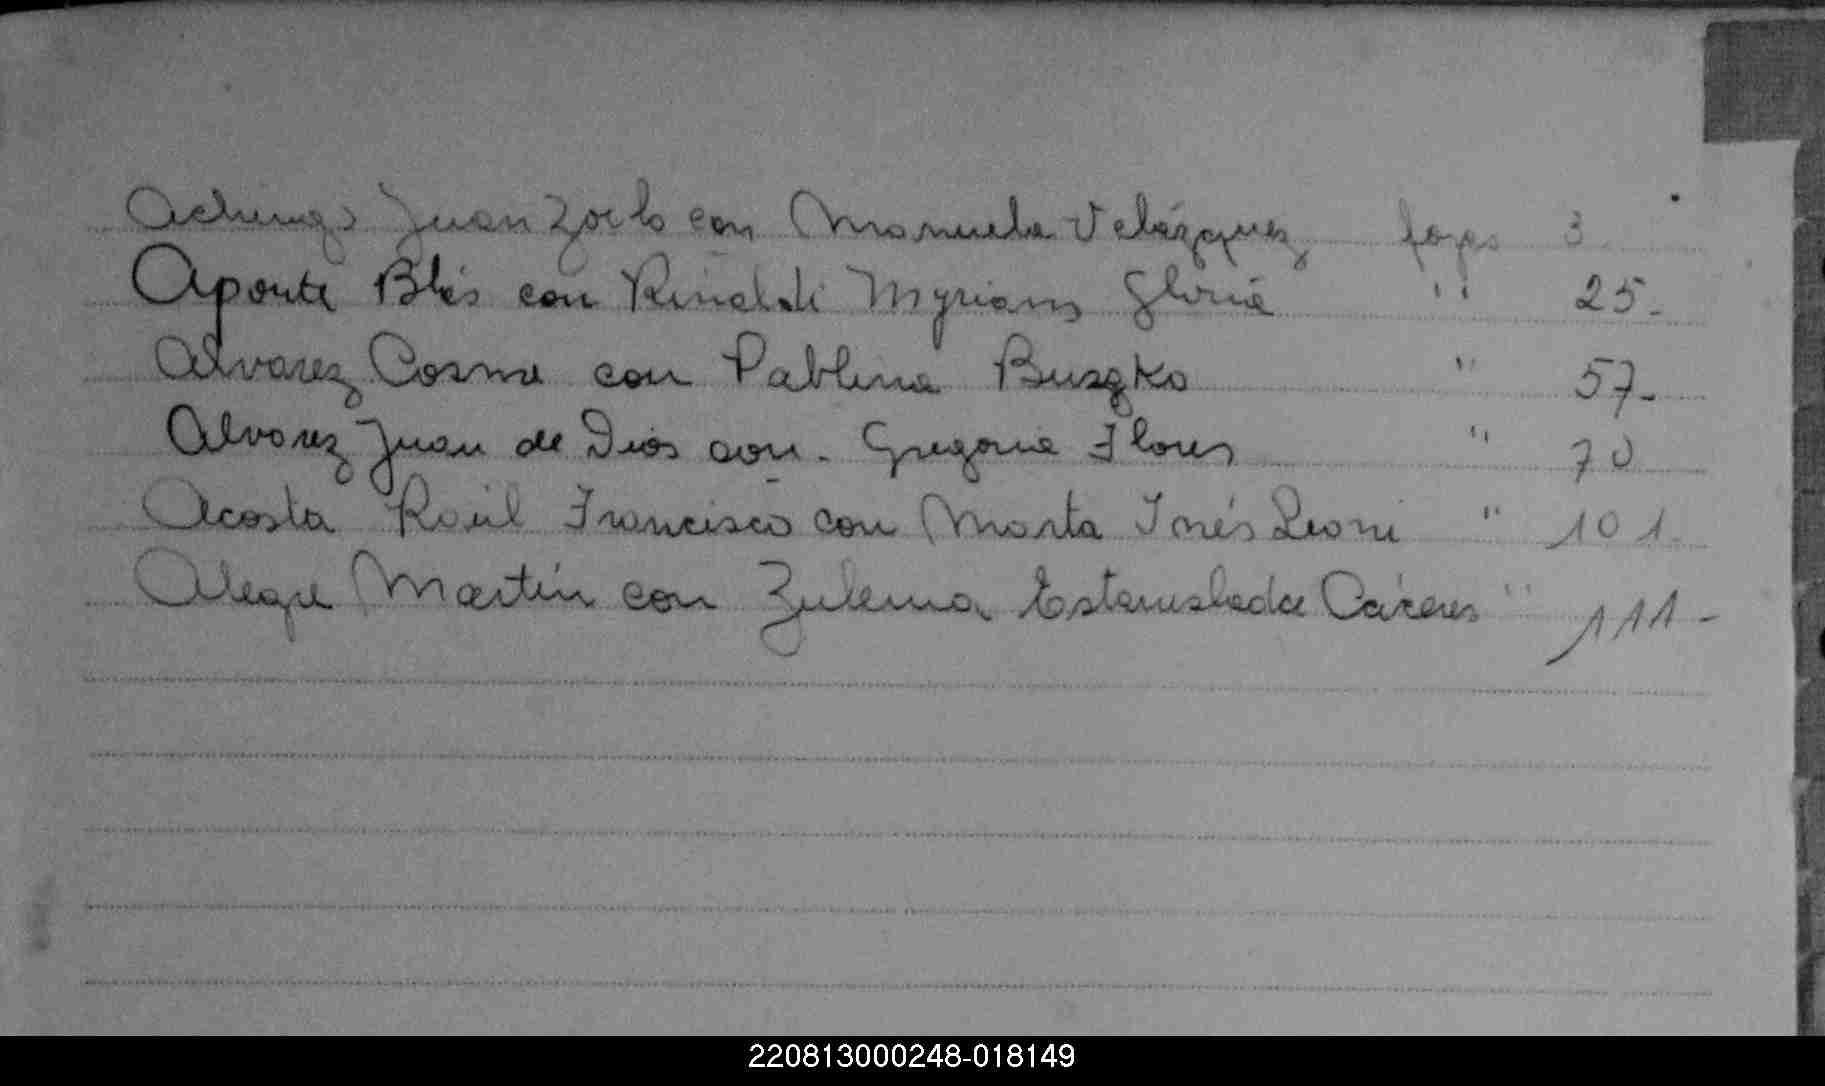 Achinga Juan Zoilo con Manuela Velázquez fojas 3
Aponte Blás con Rinaldi Myriam Gloria " 25-
Alvarez Cosme con Pablina Buszko " 57-
Alvarez Juan de Dios con - Gregoria Flores " 70
Acosta Raúl Francisco con Marta Inés Leoni " 101
Alegre Martín con Zulema Estanislada Cáceres " 111-
220813000248-018149